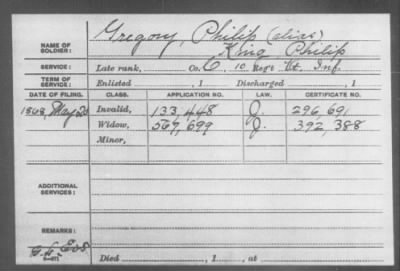 Gregory, Philip (alias)
NAME OF SOLDIER: King, Philip
SERVICE: Late rank, Co. C, 10 Reg't Vt. Inf.
TERM OF SERVICE: Enlisted , 1 Discharged , 1
DATE OF FILING. CLASS. APPLICATION NO. LAW. CERTIFICATE NO.
1868, May 20 Invalid, 133,448 J. 296,691
Widow, 567,699 J. 392,388
Minor,
ADDITIONAL SERVICES:
REMARKS:
Died , 1 , at